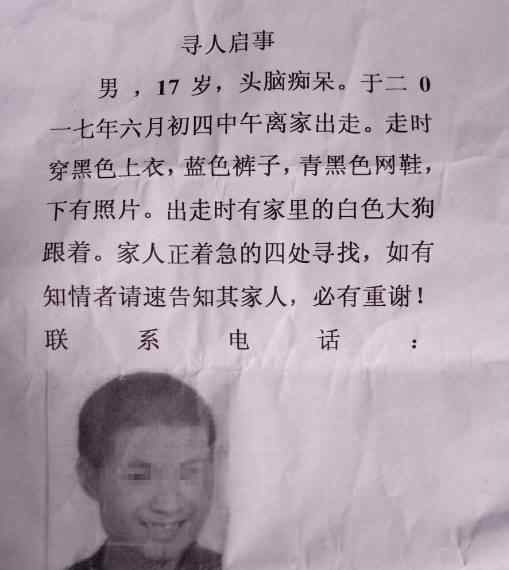 寻人启事
男，17岁，头脑痴呆。于二0
一七年六月初四中午离家出走。走时
穿黑色上衣，蓝色裤子，青黑色网鞋，
下有照片。出走时有家里的白色大狗
跟着。家人正着急的四处寻找，如有
知情者请速告知其家人，必有重谢！
联系电话：